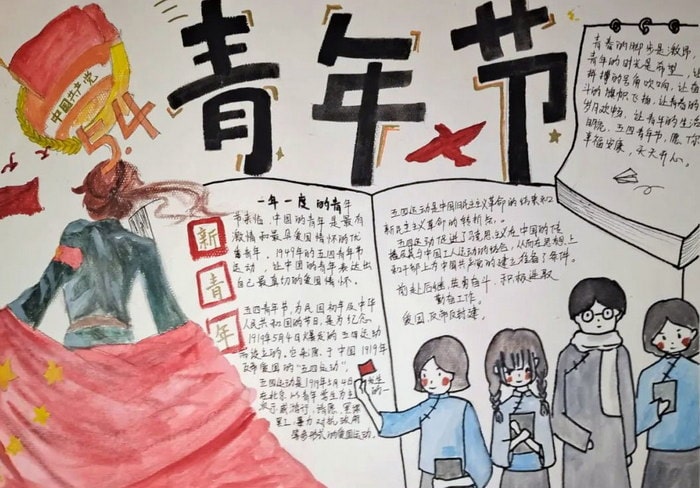 青年节
中国共产党
5.4
青春的脚步是激昂,
青年的时光是希望,
拼搏的号角吹响,让奋
斗的旗帜飞扬,让青春的
岁月欢畅,让青年的生活
明亮,五四青年节,愿你
幸福安康,天天开心。
新
青
年
一年一度的青年
节来临,中国的青年是最有
激情和最具爱国情怀的优
秀青年,1949年的五四青年节
运动,让中国的青年表达出
自己最真切的爱国情怀。
五四青年节,为民国初年及中华
人民共和国的节日,是为纪念
1919年5月4日爆发的五四运动
而设立的,它来源于中国1919年
反帝爱国的“五四运动”,
五四运动是1919年5月4日发生的
在北京以青年学生为主的一
示威游行,请愿,罢课
罢工,暴力对抗政府
等多形式的爱国运动。
五四运动是中国旧民主主义革命的结束和
新民主主义革命的转折点。
五四运动促进了马克思主义在中国的传
播及与中国工人运动的结合,从而在思想上
和干部上为中国共产党的建立准备了条件。
前赴后继,世前奋斗,积极进取
勤奋工作。
爱国反帝反封建。